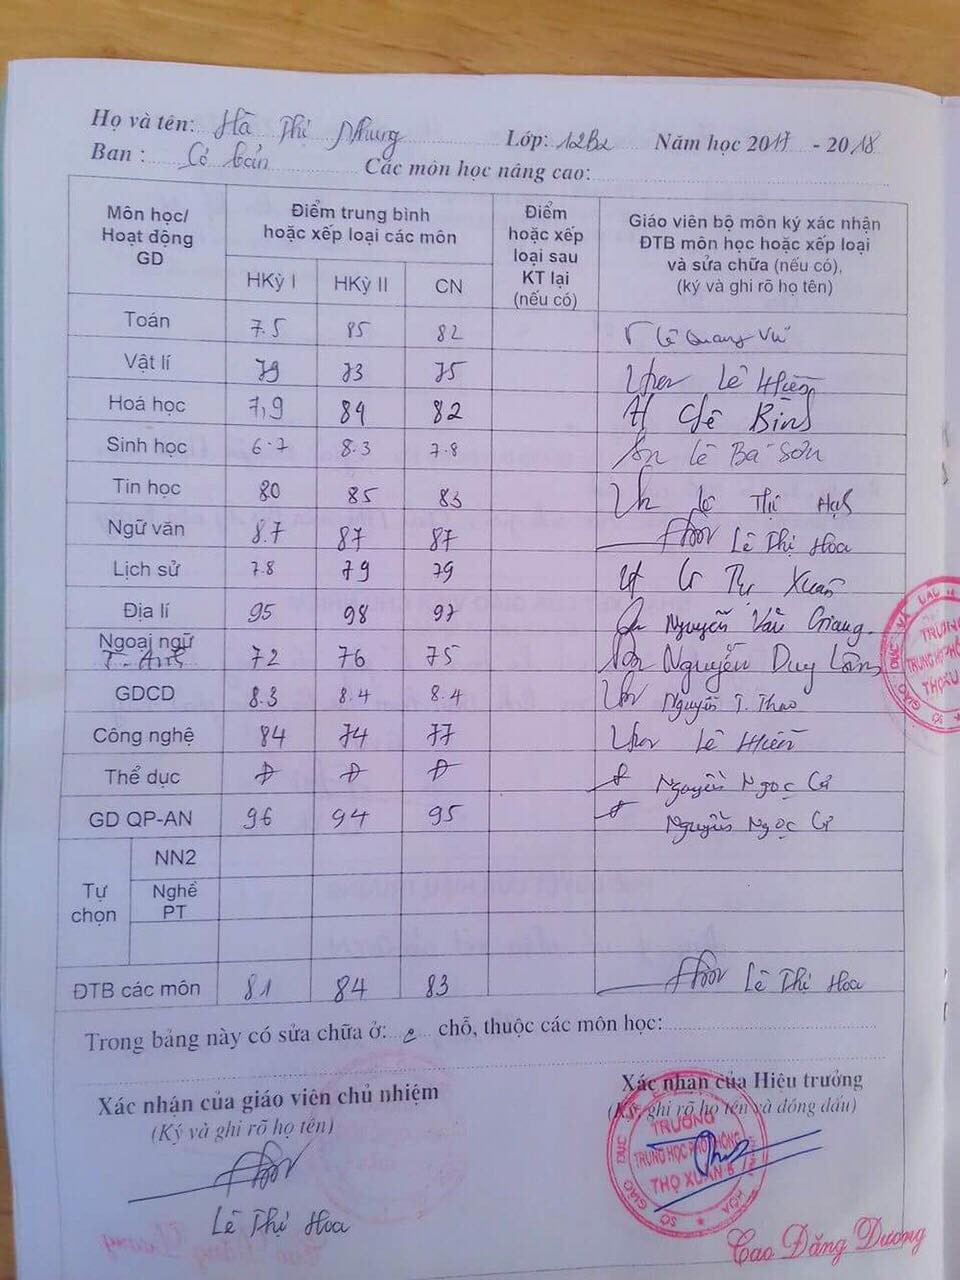 Họ và tên: Hà Thị Nhung Lớp: 12B2 Năm học 2017 - 2018
Ban : Cơ bản Các môn học nâng cao:
Môn học/ Hoạt động GD
Điểm trung bình hoặc xếp loại các môn
HKỳ I HKỳ II CN
Điểm hoặc xếp loại sau KT lại (nếu có)
Giáo viên bộ môn ký xác nhận ĐTB môn học hoặc xếp loại và sửa chữa (nếu có), (ký và ghi rõ họ tên)
Toán 7.5 85 82 Lê Quang Vũ
Vật lí 79 73 75 Lê Hiền
Hoá học 7,9 84 82 Lê Bình
Sinh học 6.7 8.3 7.8 Lê Bá Sơn
Tin học 80 85 83 Lê Thị Hạnh
Ngữ văn 8.7 87 87 Lê Thị Hoa
Lịch sử 7.8 79 79 Xuân
Địa lí 95 98 97 Nguyễn Văn Giang.
Ngoại ngữ T. Anh 72 76 75 Nguyễn Duy Lâm
GDCD 8.3 8.4 8.4 Nguyễn T. Thao
Công nghệ 84 74 77 Lê Hiền
Thể dục Đ Đ Đ Nguyễn Ngọc
GD QP-AN 96 94 95 Nguyễn Ngọc
Tự chọn
NN2
Nghề PT
ĐTB các môn 81 84 83 Lê Thị Hoa
Trong bảng này có sửa chữa ở: chỗ, thuộc các môn học:
Xác nhận của giáo viên chủ nhiệm
(Ký và ghi rõ họ tên)
Lê Thị Hoa
Xác nhận của Hiệu trưởng
(Ký, ghi rõ họ tên và đóng dấu)
TRƯỜNG
TRUNG HỌC PHỔ THÔNG
THỌ XUÂN 5
Cao Đăng Dương
TRƯỜNG
TRUNG HỌC PHỔ
THỌ XUÂN